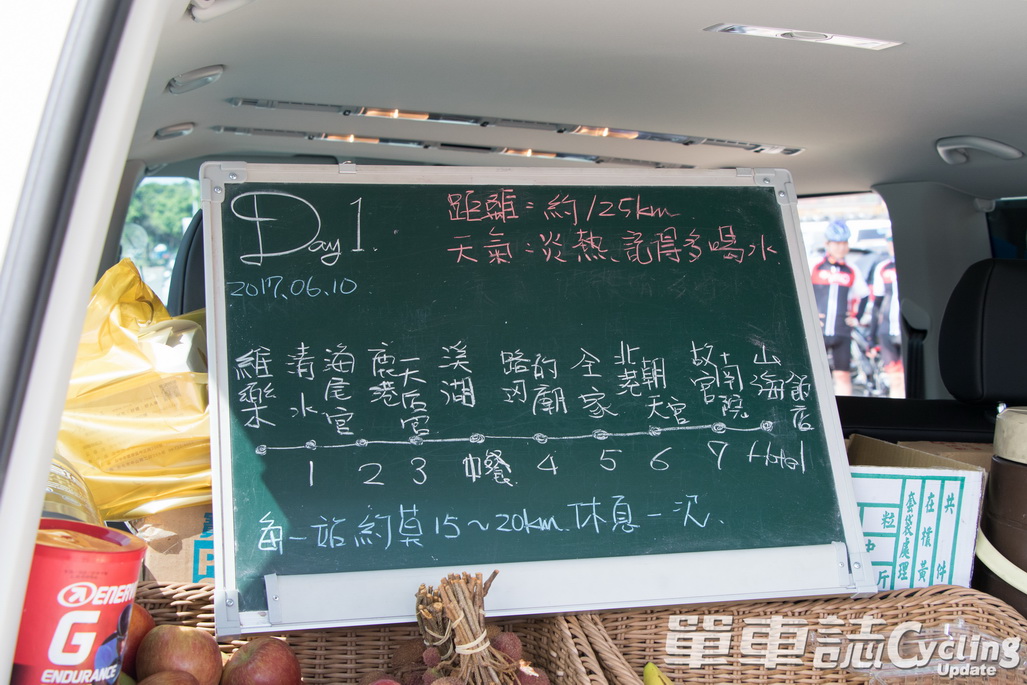 Day 1.
距離:約125km
天氣:炎熱、記得多喝水
2017.06.10
維樂
清水
海尾宮
鹿港天后宮
溪湖
路的廟
全家
北堯朝天宮
故宮南院
山海飯店
1 2 3 中餐 4 5 6 7 Hotel
每一站約莫15~20km.休息一次.
ENERVIT
G
ENDURANCE
共
在積黃件
套袋處理
粒
斤
單車誌Cycling
Update